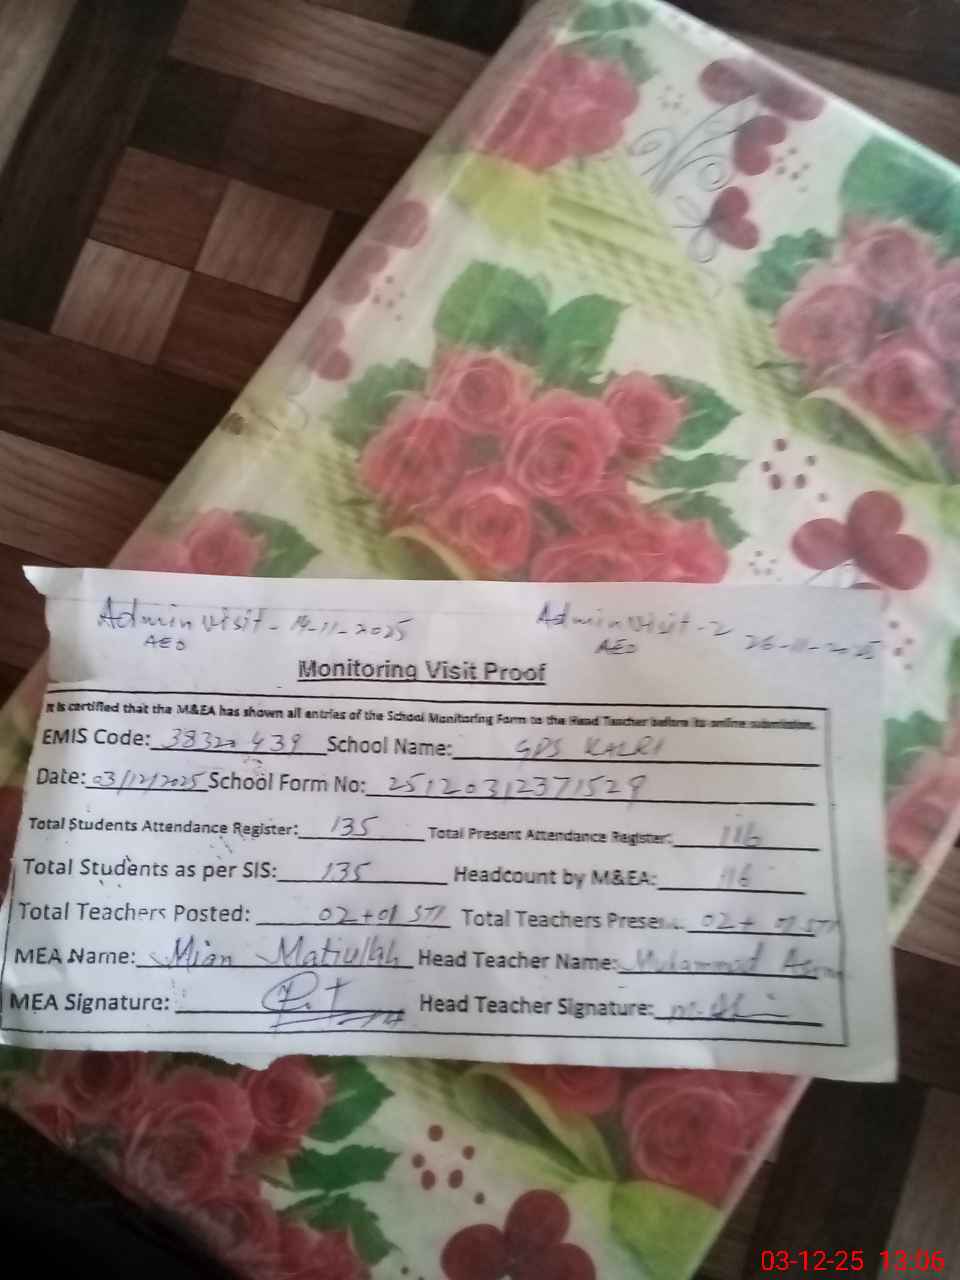 Admin visit - 14-11-2025 Admin visit - 2
AEO AEO 26-11-2025
Monitoring Visit Proof
It is certified that the M&EA has shown all entries of the School Monitoring Form to the Head Teacher before its online submission.
EMIS Code: 38320439 School Name: GPS KALRI
Date: 03/12/2025 School Form No: 25120312371529
Total Students Attendance Register: 135 Total Present Attendance Register: 116
Total Students as per SIS: 135 Headcount by M&EA: 116
Total Teachers Posted: 02+01 STI Total Teachers Present: 02+ 01 STI
MEA Name: Mian Matiullah Head Teacher Name: Muhammad
MEA Signature: Head Teacher Signature:
03-12-25 13:06